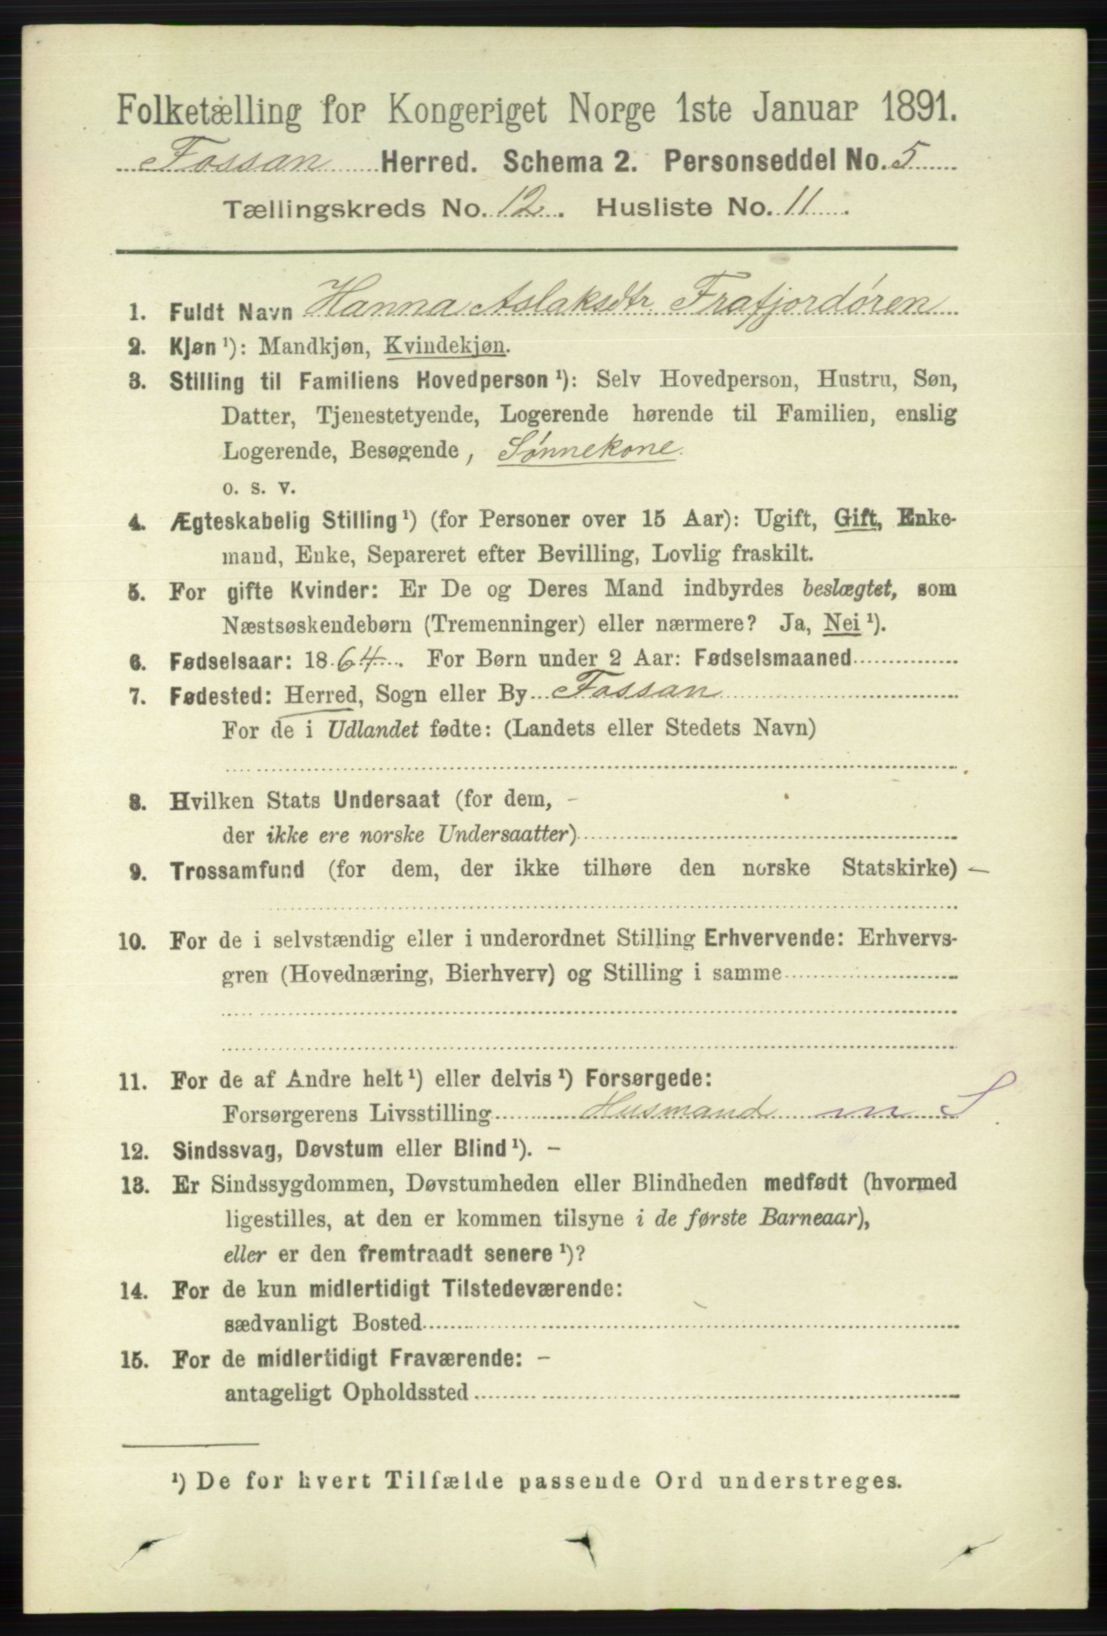 Folketælling for Kongeriget Norge 1ste Januar 1891.
Fossan Herred. Schema 2. Personseddel No. 5
Tællingskreds No. 12. Husliste No. 11.
1. Fuldt Navn Hanna Aslaksdtr. Frafjordøren
2. Kjøn ¹): Mandkjøn, Kvindekjøn.
3. Stilling til Familiens Hovedperson ¹): Selv Hovedperson, Hustru, Søn,
Datter, Tjenestetyende, Logerende hørende til Familien, enslig
Logerende, Besøgende, Sønnekone.
o. s. v.
4. Ægteskabelig Stilling ¹) (for Personer over 15 Aar): Ugift, Gift, Enke-
mand, Enke, Separeret efter Bevilling, Lovlig fraskilt.
5. For gifte Kvinder: Er De og Deres Mand indbyrdes beslægtet, som
Næstsøskendebørn (Tremenninger) eller nærmere? Ja, Nei ¹).
6. Fødselsaar: 1864. For Børn under 2 Aar: Fødselsmaaned
7. Fødested: Herred, Sogn eller By Fossan
For de i Udlandet fødte: (Landets eller Stedets Navn)
8. Hvilken Stats Undersaat (for dem, –
der ikke ere norske Undersaatter)
9. Trossamfund (for dem, der ikke tilhøre den norske Statskirke) –
10. For de i selvstændig eller i underordnet Stilling Erhvervende: Erhvervs-
gren (Hovednæring, Bierhverv) og Stilling i samme
11. For de af Andre helt ¹) eller delvis ¹) Forsørgede:
Forsørgerens Livsstilling Husmand m S
12. Sindssvag, Døvstum eller Blind ¹). –
13. Er Sindssygdommen, Døvstumheden eller Blindheden medfødt (hvormed
ligestilles, at den er kommen tilsyne i de første Barneaar),
eller er den fremtraadt senere ¹)?
14. For de kun midlertidigt Tilstedeværende:
sædvanligt Bosted
15. For de midlertidigt Fraværende: –
antageligt Opholdssted
¹) De for hvert Tilfælde passende Ord understreges.